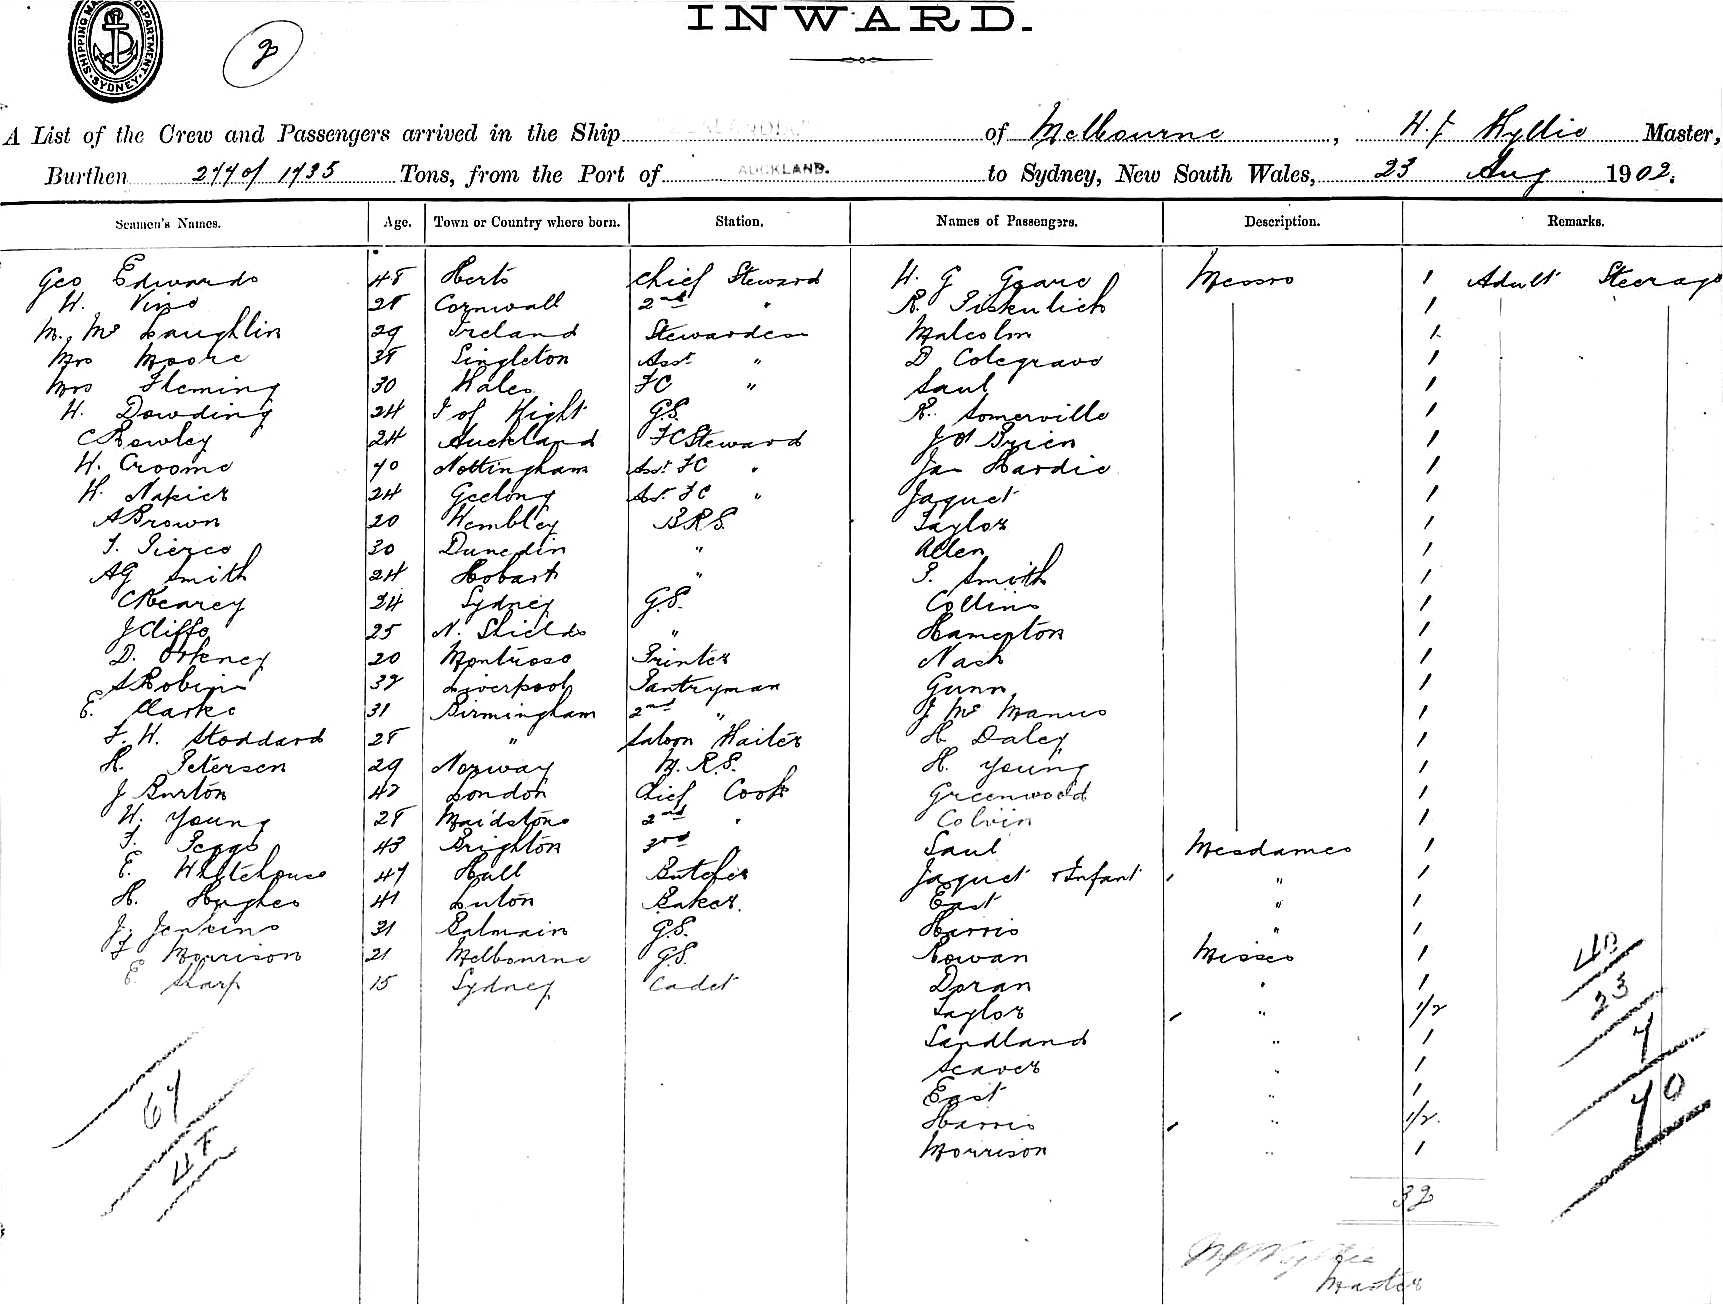 SHIPPING MA DEPARTMENT. SYDNEY
2
INWARD.
A List of the Crew and Passengers arrived in the Ship ZEALANDIA of Melbourne, W. J. Wyllie Master,
Burthen 2770/1735 Tons, from the Port of AUCKLAND. to Sydney, New South Wales, 23 Aug 1902.
Seamen's Names. Age. Town or Country where born. Station. Names of Passengers. Description. Remarks.
Geo Edwards 48 Herts Chief Steward W. G Messrs 1 Adult Steerage
W. Vine 28 Cornwall 2nd " 1
M. Mc Laughlin 29 Ireland Stewardess Malcolm 1
Mrs Moore 38 Singleton Asst " D Colegrave 1
Mrs Fleming 30 Wales FC " Saul 1
W. Dowding 24 I of Wight G.S. R. Somerville 1
C Rowley 24 Auckland FC Steward J O'Brien 1
W. Croome 40 Nottingham Asst FC " Jas Hardie 1
W. Napier 24 Geelong Ast FC " Jaquet 1
A Brown 20 Wembley B.R.S. Taylor 1
F. Pierce 30 Dunedin " Allen 1
AG Smith 24 Hobart " S. Smith 1
C Kearey 24 Sydney G.S. Collins 1
J Cliffe 25 N. Shields " Hampton 1
D. Orkney 20 Montrose Printer Nash 1
S Robin 32 Liverpool Pantryman Gunn 1
E. Clarke 31 Birmingham 2nd " J Mc Manus 1
F. W. Stoddard 28 " Saloon Waiter H. Daley 1
H. Petersen 29 Norway M.R.S. H. Young 1
J Burton 42 London Chief Cook Greenwood 1
W. Young 28 Maidstone 2nd " Colvin 1
F. Peggs 43 Brighton 3rd " Saul Mesdames 1
E. Whitehouse 47 Hull Butcher Jaquet & Infant " 1
H. Hughes 41 Luton Baker. East " 1
J. Jenkins 31 Balmain G.S. Harris " 1
F Morrison 21 Melbourne G.S. Rowan Misses 1
E Sharp 15 Sydney Cadet Doran " 1
Taylor " 1/2
Sandland " 1
Seaver " 1
East " 1
Harris " 1/2
Morrison " 1
40
23
7
70
67
47
32
W J Wyllie
Master